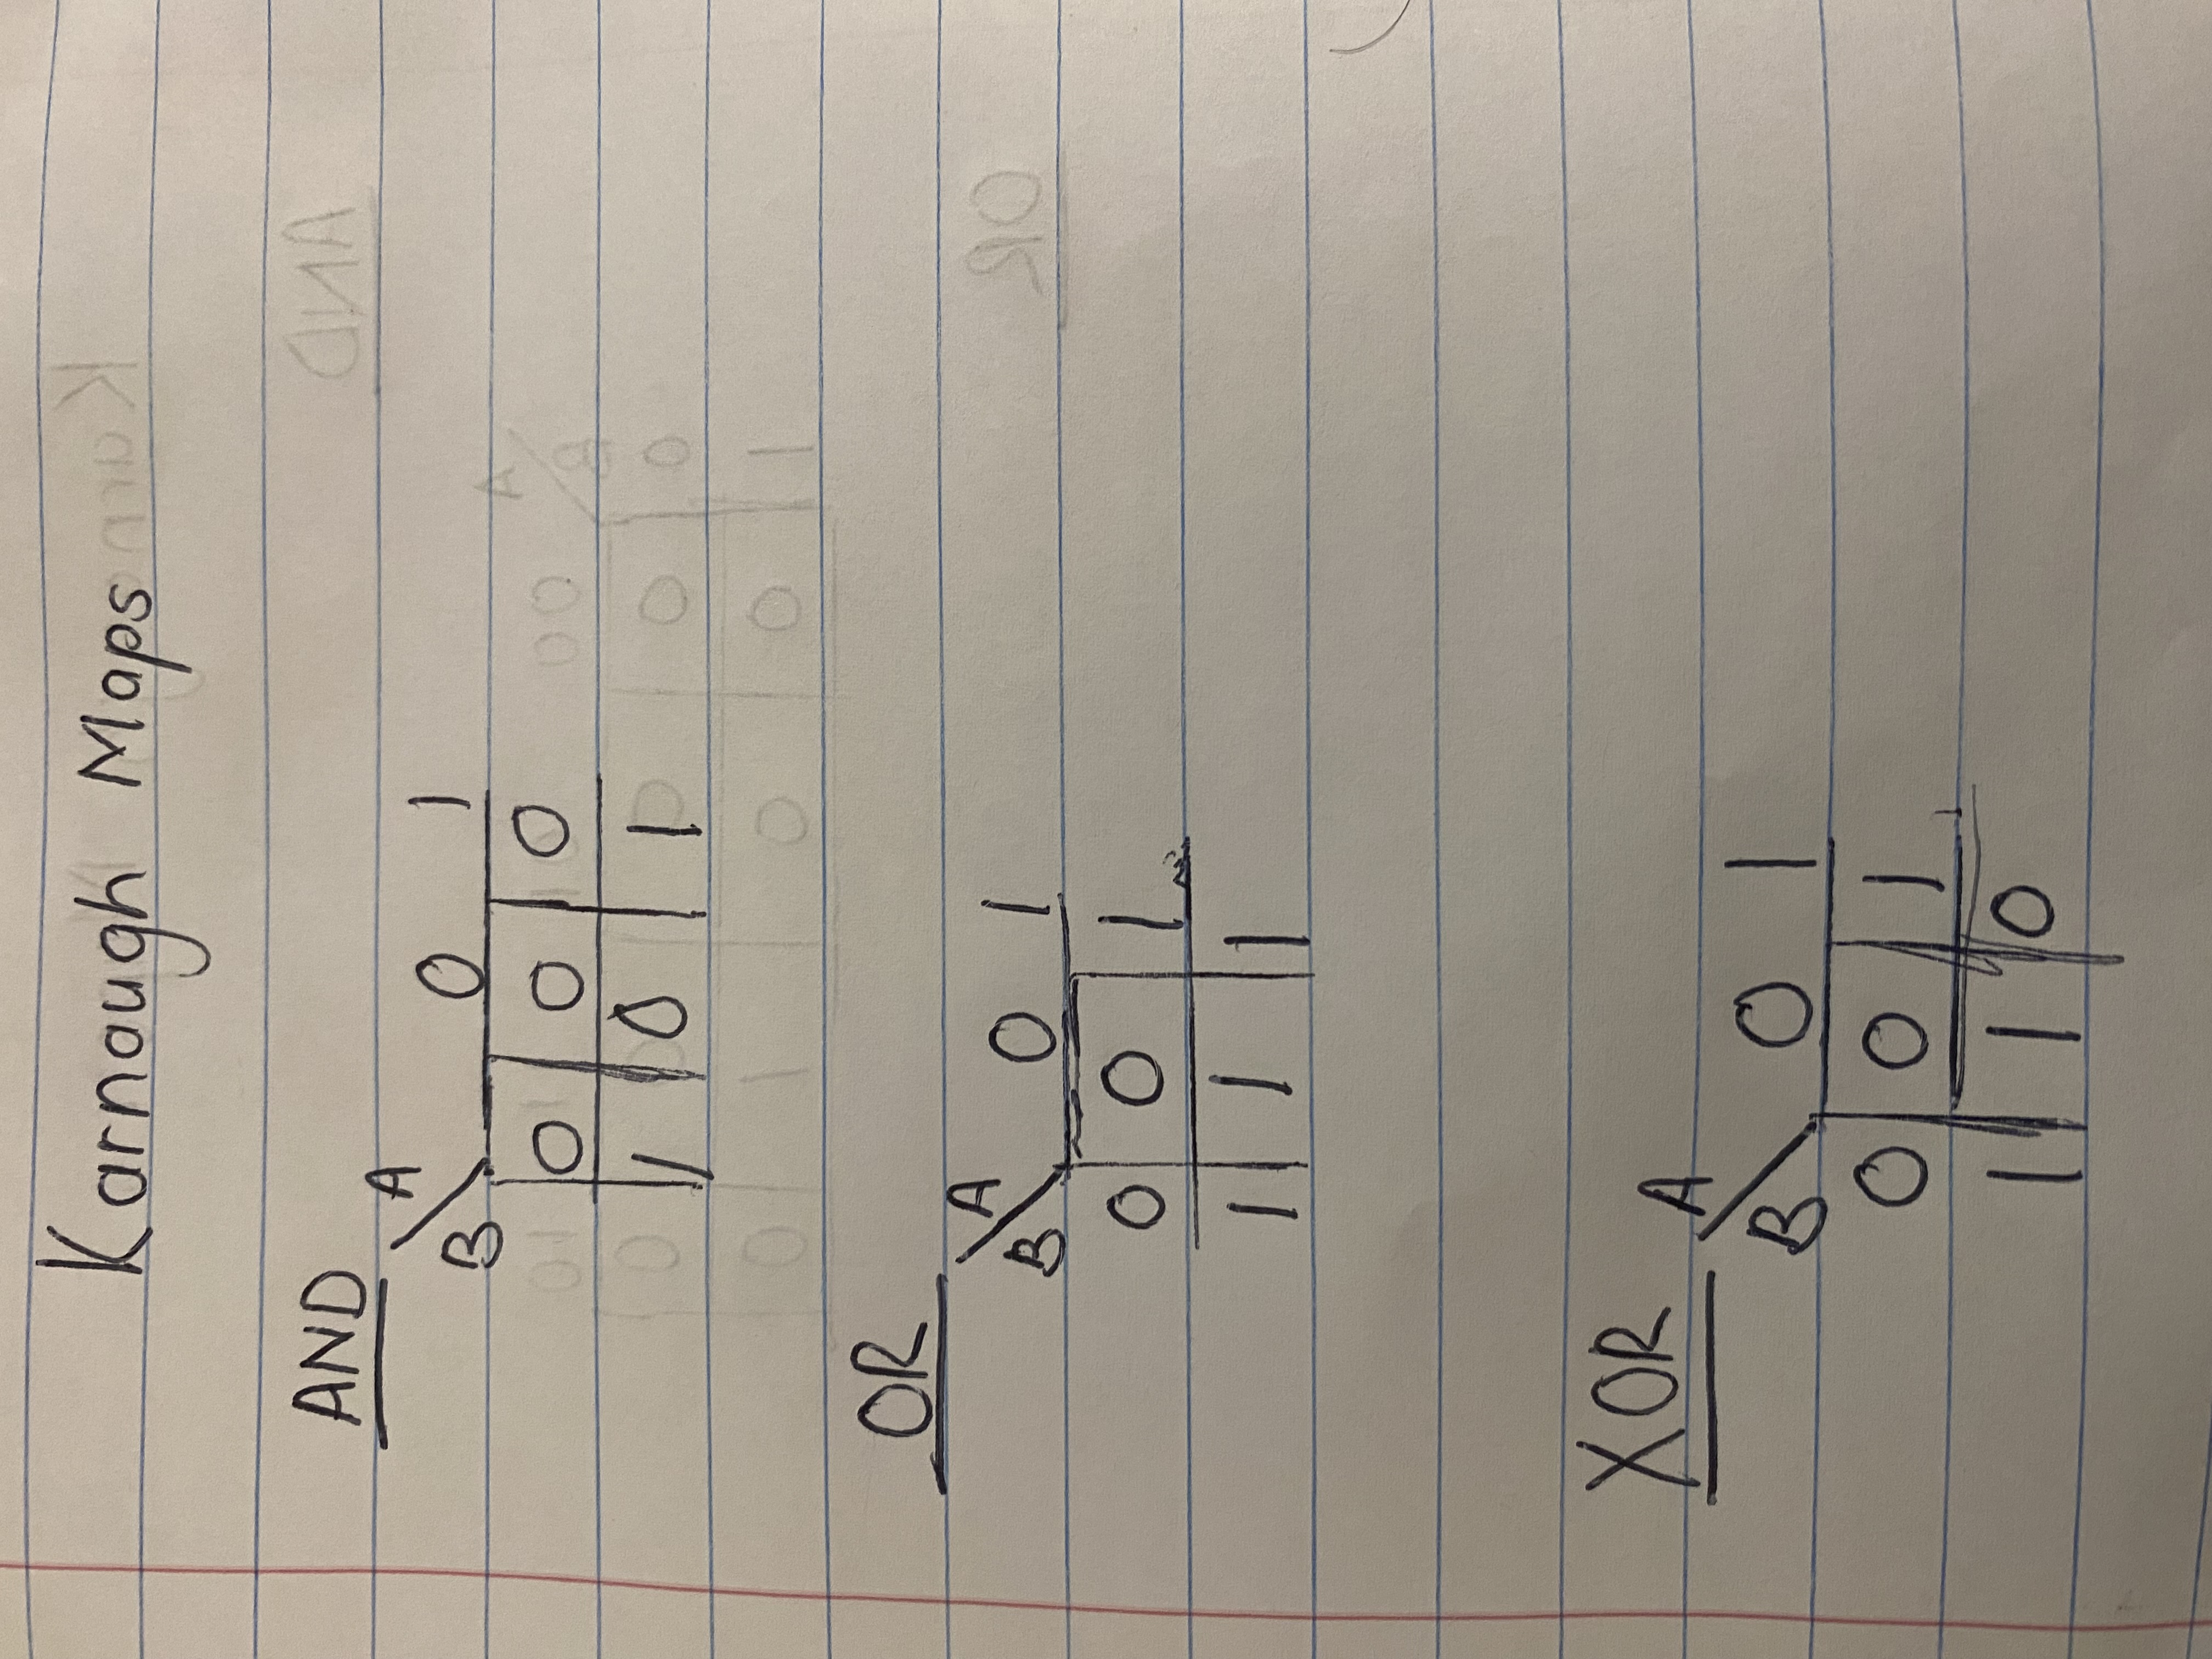 Karnaugh Maps
AND
A
B 0 1
0 0 0
1 0 1
OR
A
B 0 1
0 0 1
1 1 1
XOR
A
B 0 1
0 0 1
1 1 0